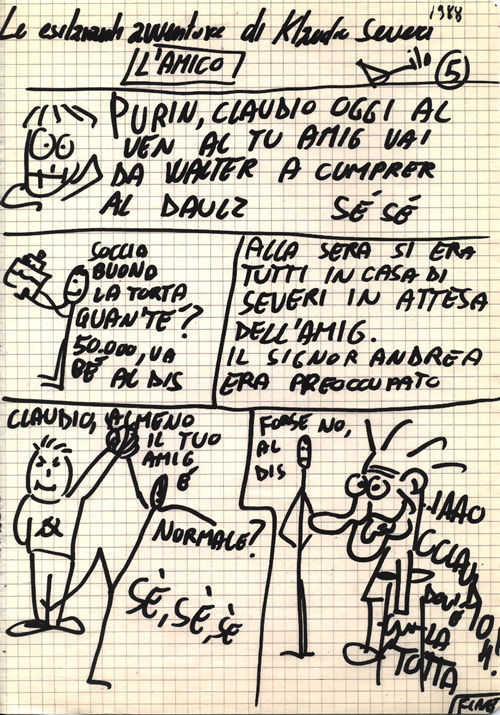 Le esilaranti avventure di Klaudio Severi
1988
L'AMICO!
5
PURIN, CLAUDIO OGGI AL
VEN AL TU AMIG VAI
DA WALTER A CUMPRER
AL DAULZ
SÉ SÉ
SOCCIA
BUONO
LA TORTA
QUAN'TE'?
50.000, VA
BE'
AL DIS
ALLA SERA SI ERA
TUTTI IN CASA DI
SEVERI IN ATTESA
DELL'AMIG.
IL SIGNOR ANDREA
ERA PREOCCUPATO
CLAUDIO, ALMENO
IL TUO
AMIG
È
NORMALE?
SÈ, SÈ, SÈ
FORSE NO,
AL
DIS
CCLAU
DOV'È
LA
TOTTA
FINE